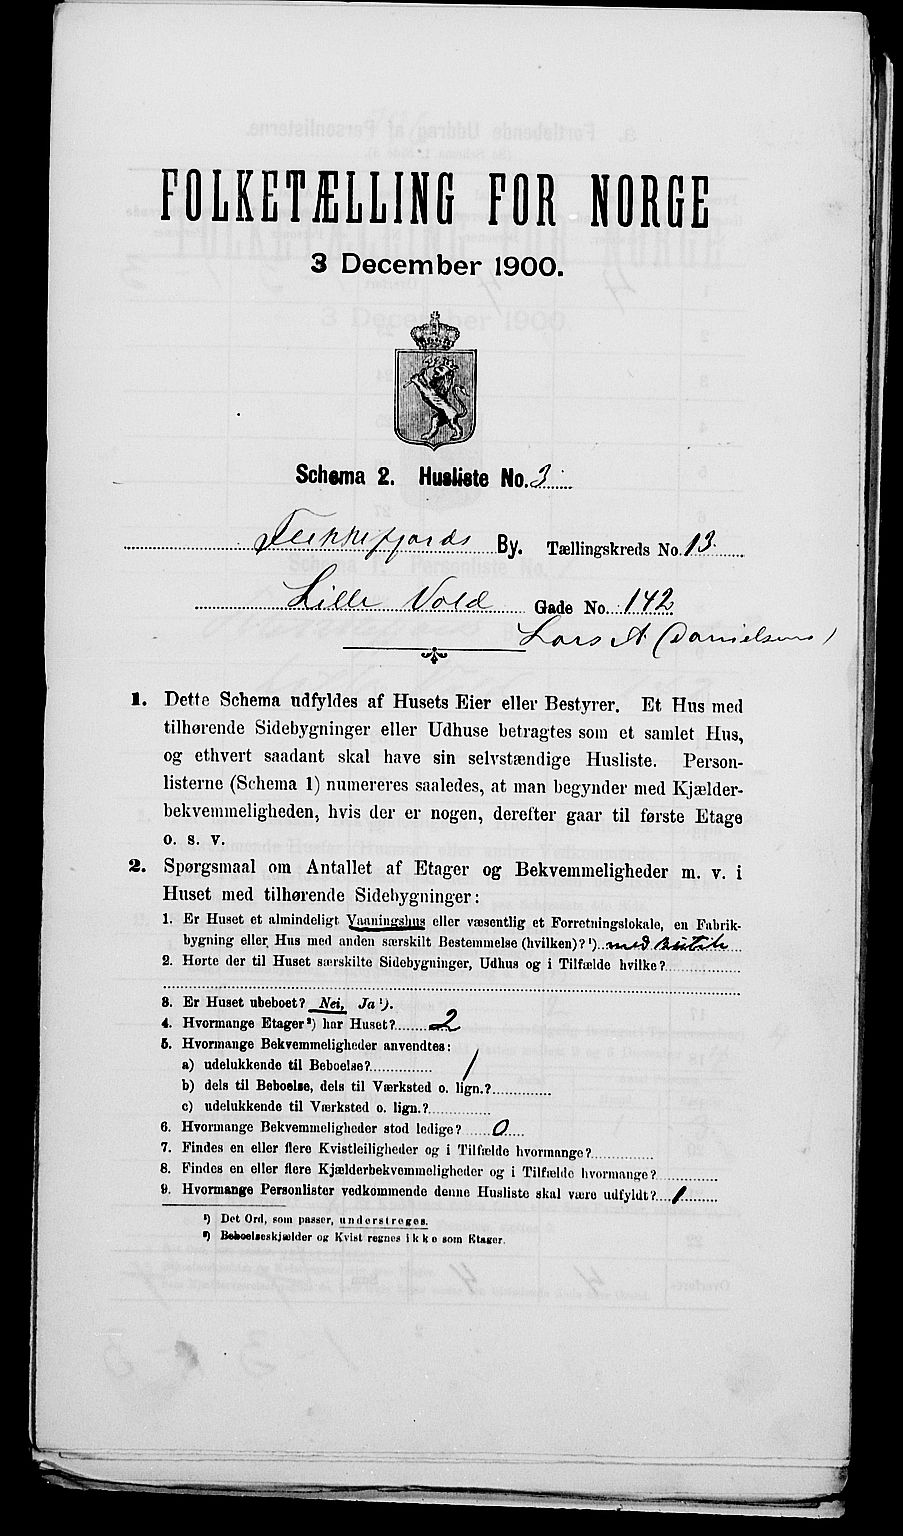 FOLKETÆLLING FOR NORGE
3 December 1900.
Schema 2. Husliste No. 3
Flekkefjords By. Tællingskreds No. 13.
Lille Vold Gade No. 142
Lars A (Danielsens)
1. Dette Schema udfyldes af Husets Eier eller Bestyrer. Et Hus med
tilhørende Sidebygninger eller Udhuse betragtes som et samlet Hus,
og ethvert saadant skal have sin selvstændige Husliste. Person-
listerne (Schema 1) numereres saaledes, at man begynder med Kjælder-
bekvemmeligheden, hvis der er nogen, derefter gaar til første Etage
o. s. v.
2. Spørgsmaal om Antallet af Etager og Bekvemmeligheder m. v. i
Huset med tilhørende Sidebygninger:
1. Er Huset et almindeligt Vaaningshus eller væsentlig et Forretningslokale, en Fabrik-
bygning eller Hus med anden særskilt Bestemmelse (hvilken)? ¹) med butik
2. Hørte der til Huset særskilte Sidebygninger, Udhus og i Tilfælde hvilke?
3. Er Huset ubeboet? Nei, Ja ¹).
4. Hvormange Etager ²) har Huset? 2
5. Hvormange Bekvemmeligheder anvendtes:
a) udelukkende til Beboelse? 1
b) dels til Beboelse, dels til Værksted o. lign.?
c) udelukkende til Værksted o. lign.?
6. Hvormange Bekvemmeligheder stod ledige? 0
7. Findes en eller flere Kvistleiligheder og i Tilfælde hvormange?
8. Findes en eller flere Kjælderbekvemmeligheder og i Tilfælde hvormange?
9. Hvormange Personlister vedkommende denne Husliste skal være udfyldt? 1
¹) Det Ord, som passer, understreges.
²) Beboelseskjælder og Kvist regnes ikke som Etager.